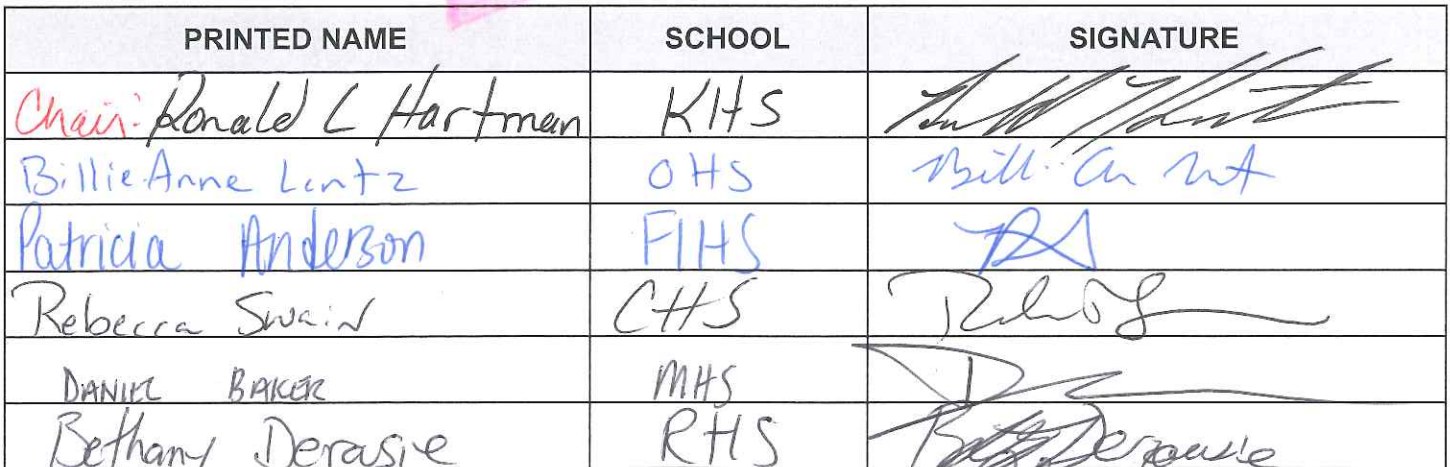 PRINTED NAME SCHOOL SIGNATURE
Chair: Ronald L Hartman KHS
Billie Anne Lentz OHS
Patricia Anderson FIHS
Rebecca Swain CHS
DANIEL BAKER MHS
Bethany Derasie RHS